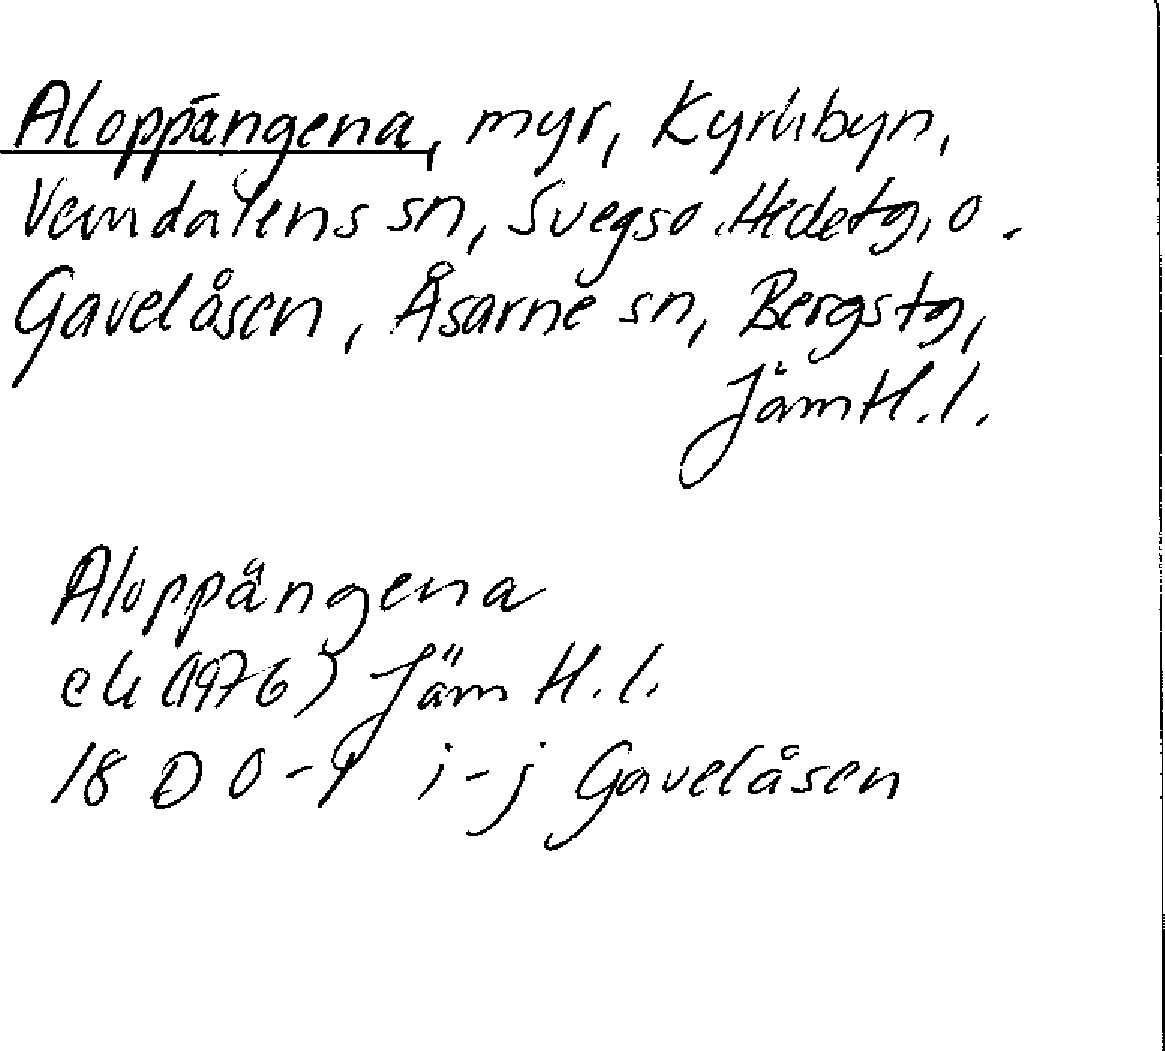 Aloppängena, myr, Kyrkbyn,
Vemdalens sn, Svegs o. Hede tg, o.
Gavelåsen, Åsarne sn, Bergs tg,
Jämtl. l.
Aloppängena
ek (1976) Jämtl. l.
18 D 0-1 i-j Gavelåsen